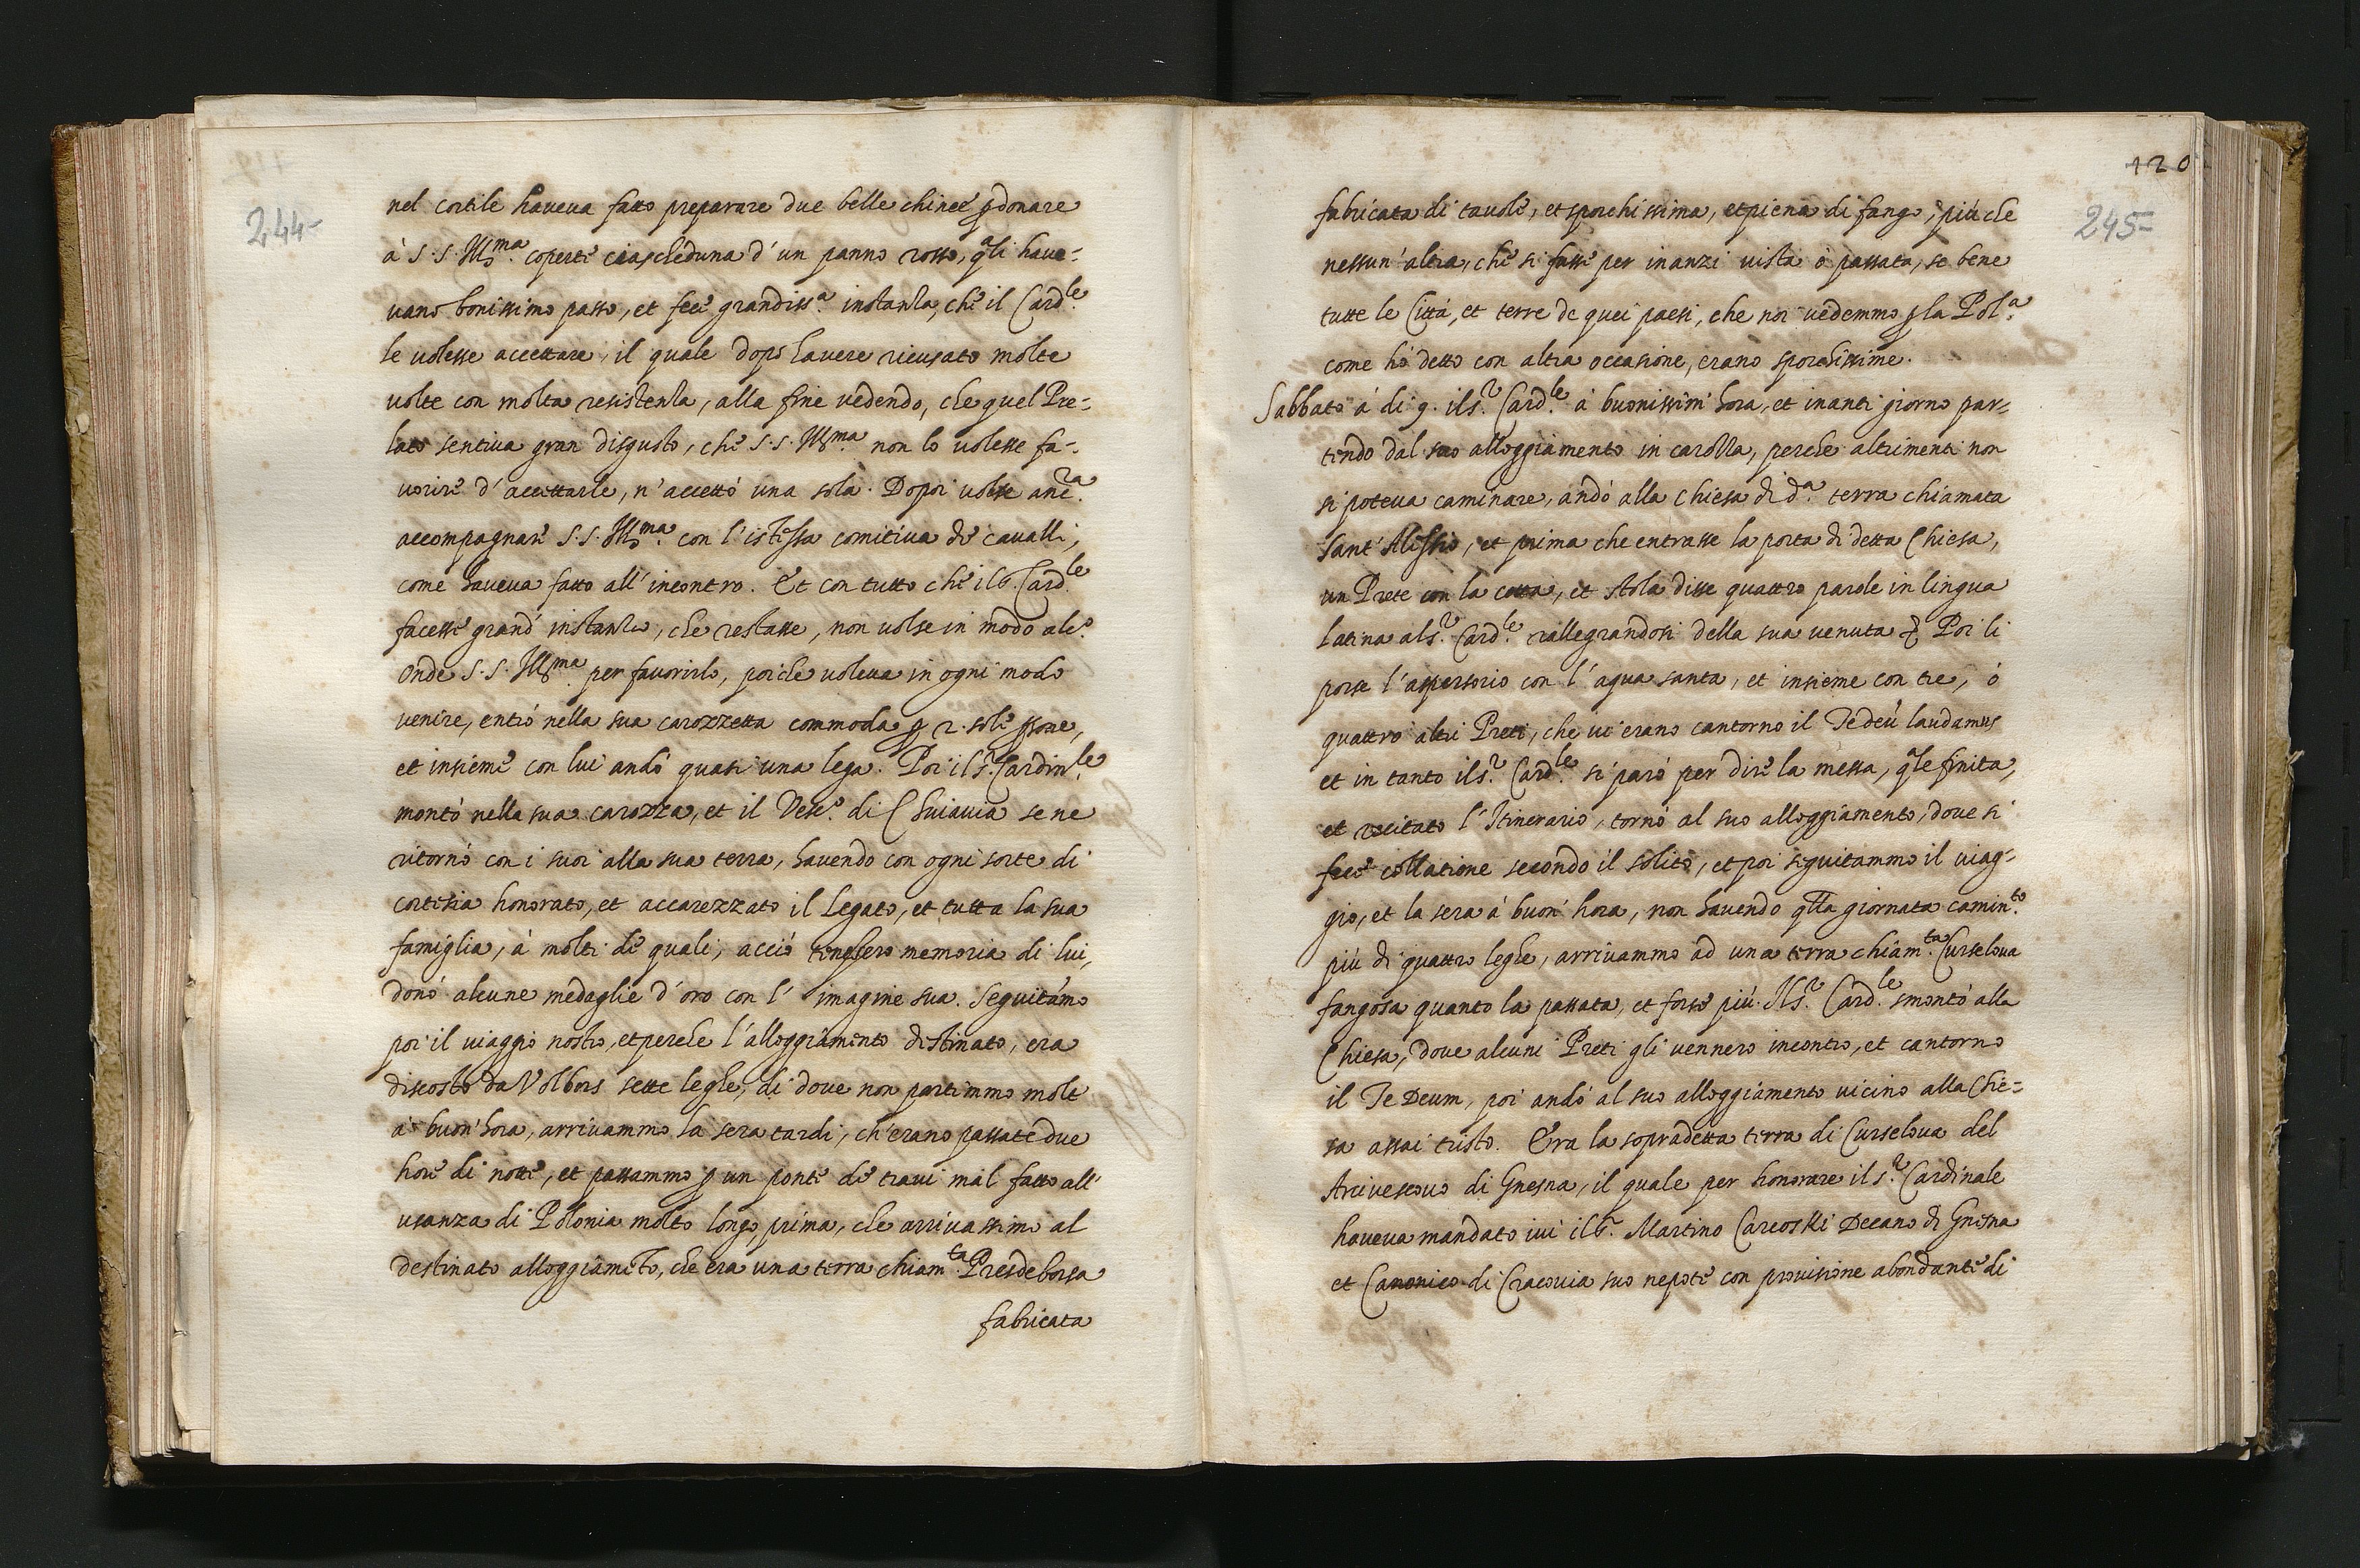 244-
nel cortile haueua fatto preparare due belle chinee p donare
à S. S. Ill.ma coperte ciascheduna d'un panno rosso, q.ali haue-
uano bonissimo passo, et fece grandiss.a instanza, che il Card.le
le uolesse accettare, il quale dopo hauere ricusato molte
uolte con molta resistenza, alla fine uedendo, che quel Pre-
lato sentiua gran disgusto, che S. S. Ill.ma non lo uolesse fa-
uorire d'accettarle, n'accettó una sola. Dopoi uolse anc.a
accompagnare S. S. Ill.ma con l'istessa comitiua de caualli,
come haueua fatto all'incontro. Et con tutto che il S. Card.le
facesse grand'instanza, che restasse, non uolse in modo alc.o
Onde S. S. Ill.ma per fauorirlo, poiche uoleua in ogni modo
venire, entró nella sua carozzetta commoda p 2. sole psone,
et insieme con lui andó quasi una lega. Poi il S.r Cardin.le
montó nella sua carozza, et il Vesc.o di Chuiauia se ne
ritornó con i suoi alla sua terra, hauendo con ogni sorte di
cortesia honorato, et accarezzato il Legato, et tutta la sua
famiglia, à molti de quali, acció tenessero memoria di lui,
donó alcune medaglie d'oro con l'imagine sua. Seguitámo
poi il uiaggio nostro, et perche l'alloggiamento destinato, era
discosto da Volbors sette leghe, di doue non partimmo molt
à buon'hora, arriuammo la sera tardi, ch'erano passate due
hore di notte, et passammo p un ponte de traui mal fatto all'
usanza di Polonia molto longo, prima, che arriuassimo al
destinato alloggiamēto, che era una terra chiam.ta Presdeborsa
fabricata
120
245-
fabricata di tauole, et sporchissima, et piena di fango, piú che
nessun'altra, che si fusse per inanzi uista ó passata, se bene
tutte le Cittá, et terre de quei paesi, che noi uedemmo p la Pol.a
come hó detto con altra occasione, erano sporchissime.
Sabbato á di 9. il S.r Card.le á buonissim'hora, et inanti giorno par-
tendo dal suo alloggiamento in carozza, perche altrimenti non
si poteua caminare, andó alla Chiesa di d.a terra chiamata
Sant'Alissio, et prima che entrasse la porta di detta Chiesa,
un Prete con la cotta, et stola disse quattro parole in lingua
latina al S.r Card.le rallegrandosi della sua uenuta & Poi li
porse l'aspersorio con l'aqua santa, et insieme con tre, ó
quattro altri Preti, che ui erano cantorno il Te deū laudamus
et in tanto il S.r Card.le si paró per dire la messa, q.ale finita,
et recitato l'Itinerario, tornó al suo alloggiamento, doue si
fece collatione secondo il solito, et poi seguitammo il uiag-
gio, et la sera á buon'hora, non hauendo qlla giornata camin.to
piú di quattro leghe, arriuammo ad una terra chiam.ta Curseloua
fangosa quanto la passata, et forse piú. Il S.r Card.le smontó alla
Chiesa, doue alcuni Preti gli uennero incontro, et cantorno
il Te Deum, poi andó al suo alloggiamento uicino alla Chie-
sa assai tristo. Era la sopradetta terra di Curseloua del
Arciuescouo di Gnesna, il quale per honorare il S.r Cardinale
haueua mandato iui il S.r Martino Carcoski Decano di Gnesna
et Canonico di Cracouia suo nepote con prouisione abondante di